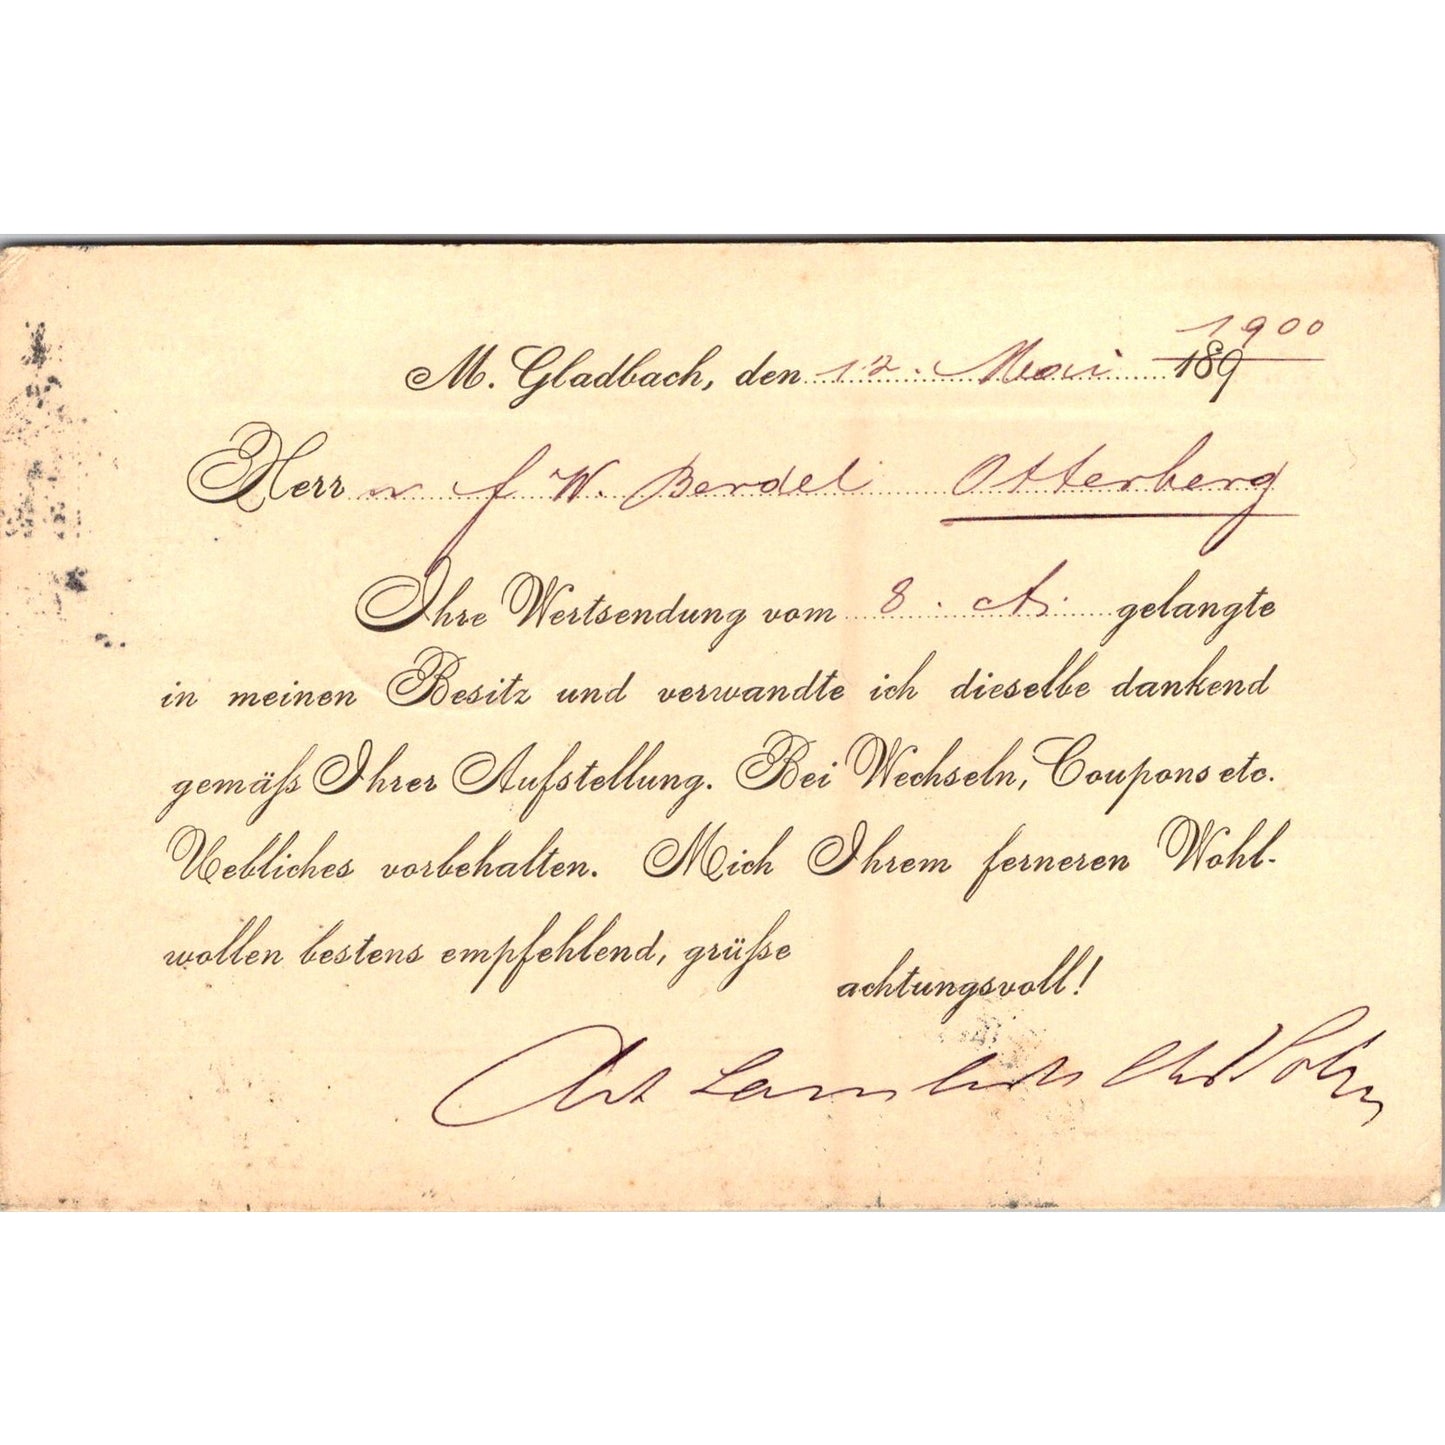 M. Gladbach, den 12. Mai 189 1900
Herrn f W. Berdel Otterberg
Ihre Wertsendung vom 8. gelangte
in meinen Besitz und verwandte ich dieselbe dankend
gemäſs Ihrer Aufstellung. Bei Wechseln, Coupons etc.
Uebliches vorbehalten. Mich Ihrem ferneren Wohl-
wollen bestens empfehlend, grüſse
achtungsvoll!